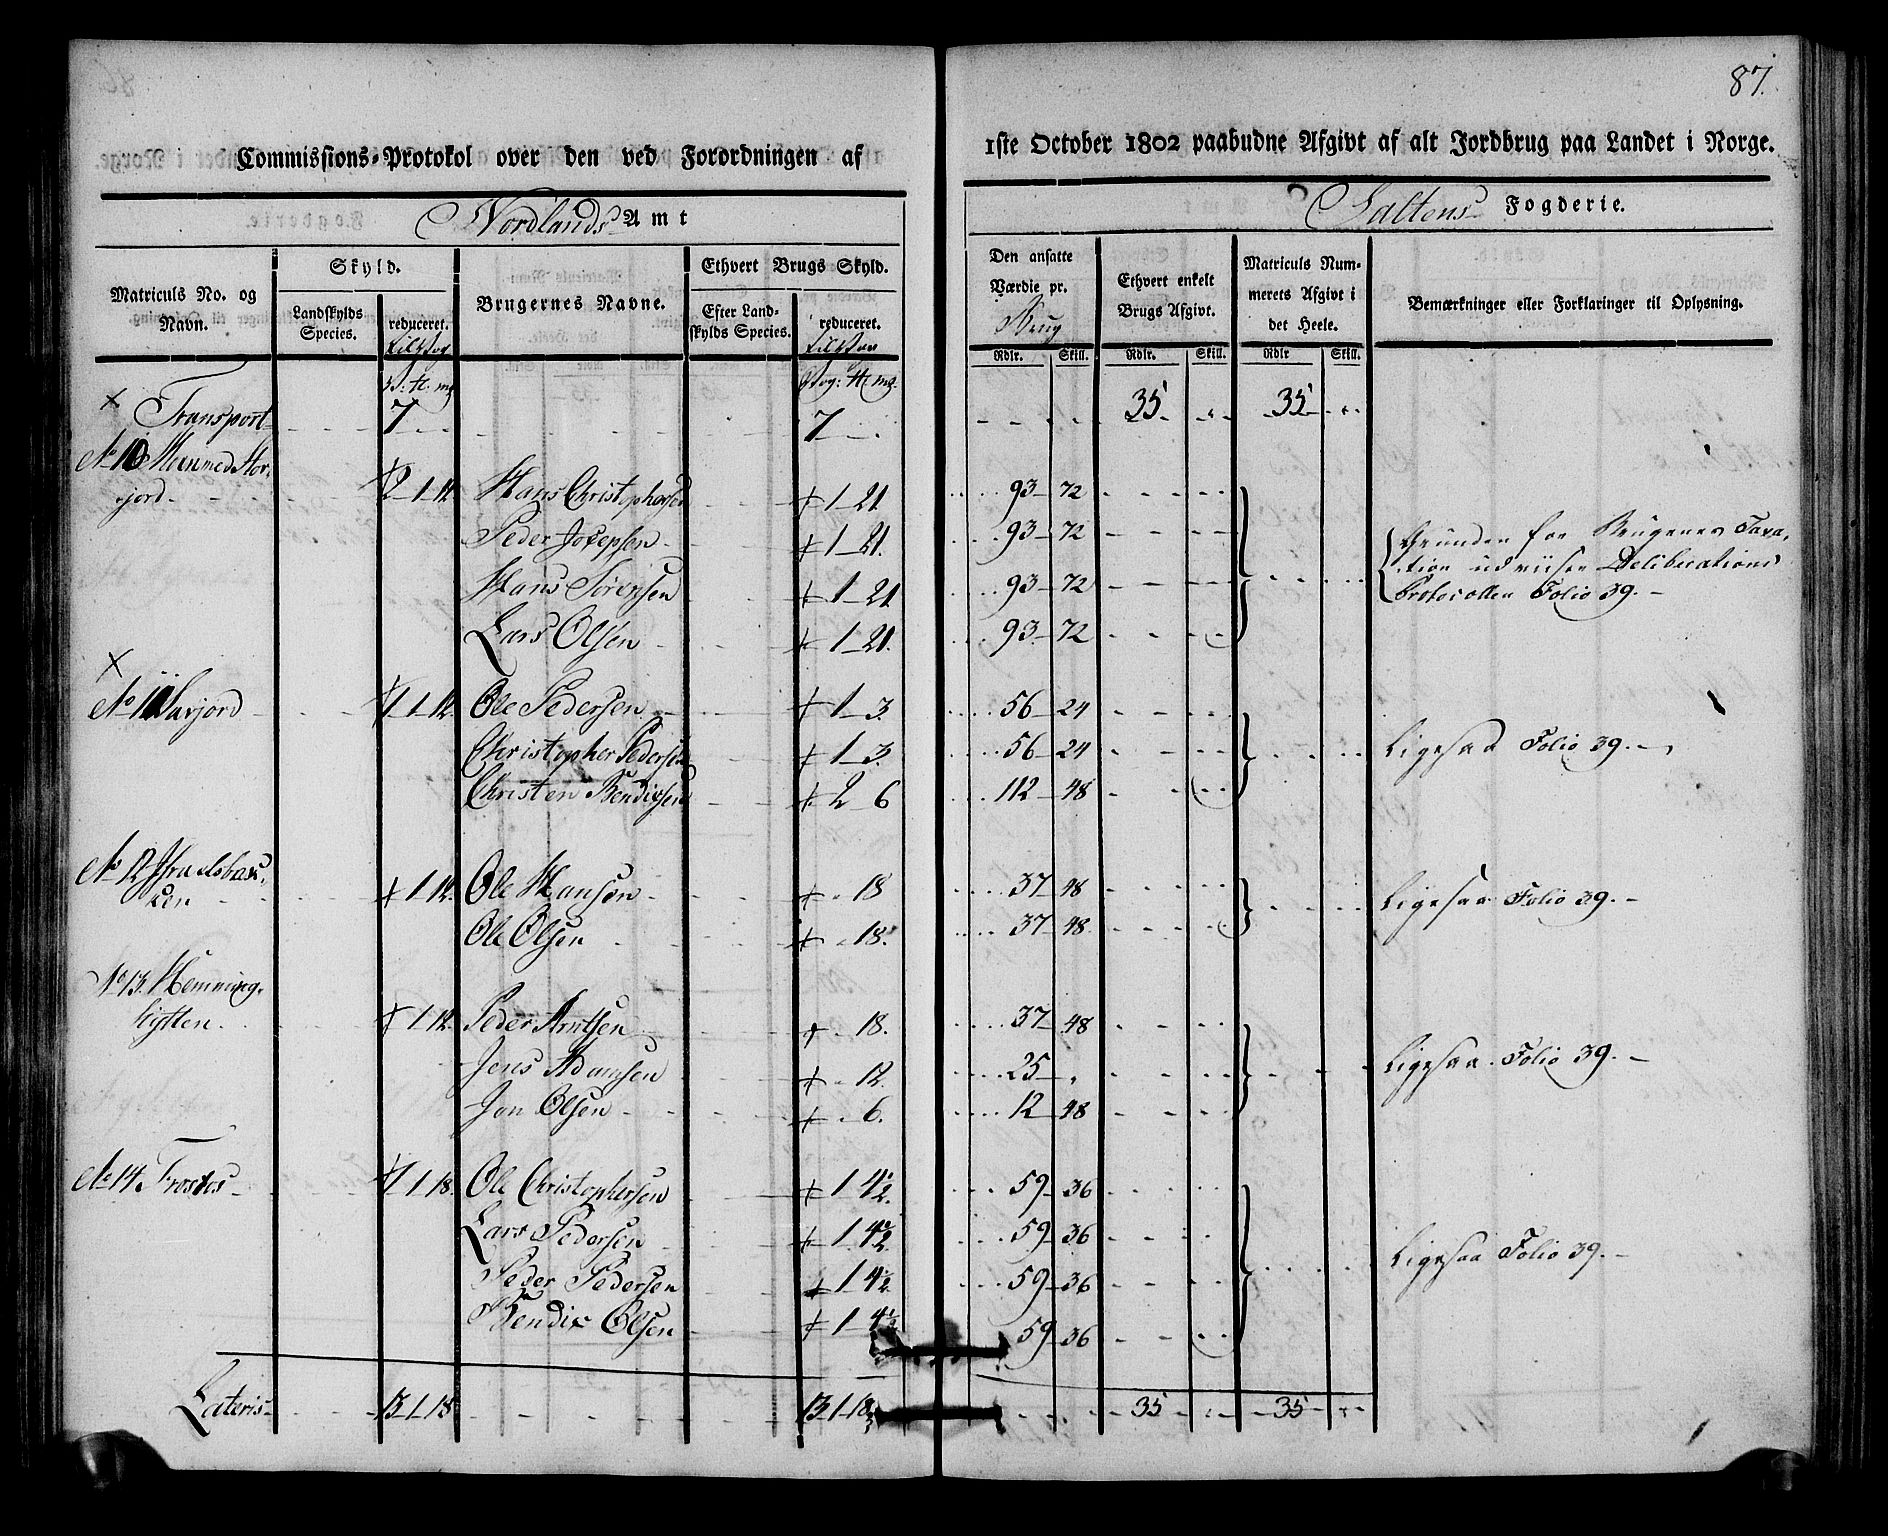 87.
Commissions-Protokol over den ved Forordningen af 1ste October 1802 paabudne Afgivt af alt Jordbrug paa Landet i Norge.
Nordlands Amt
Saltens Fogderie.
Matriculs No. og Navn.
Skyld.
Landskylds Species.
reduceret.
Brugernes Navne.
Ethvert Brugs Skyld.
Efter Landskylds Species.
reduceret.
Den ansatte Værdie pr. Brug
Rdlr. Skill.
Ethvert enkelt Brugs Afgivt.
Rdlr. Skill.
Matriculs Nummerets Afgivt i det Heele.
Rdlr Skill.
Bemærkninger eller Forklaringer til Oplysning.
Transport 7 7 35 35
No 10 jord 2 1 12 Hans Christophersen 1 21 93 72
Peder Josepsen 1 21. 93 72
Hans Sörensen 1 21 93 72
Lars Olsen 1 21. 93 72
Grunden for Brugenes Taxa-
tion udviiser Deliberations
Protocollen Folio 39.
No 11 1 1 12. Ole Pedersen 1 3. 56 24
Christopher Pedersen 1 3. 56 24
Christen Bendixsen 2 6 112 48
Ligesaa Folio 39.
No 12 1 12. Ole Hansen 18 37 48
Ole Olsen 18. 37 48
Ligesaa Folio 39.
No 13. Hemning-
hytten 1 12. Peder Arntsen 18. 37 48
Jens Adamsen 12. 25
Jon Olsen 6. 12 48
Ligesaa Folio 39.
No 14. 1 1 18. Ole Christophersen 1 4½. 59 36
Lars Pedersen 1 4½. 59 36
Peder Pedersen 1 4½. 59 36
Bendix Olsen 1 4½ 59 36
Ligesaa Folio 39.
Lateris 13 1 18 13 1 18 35 35